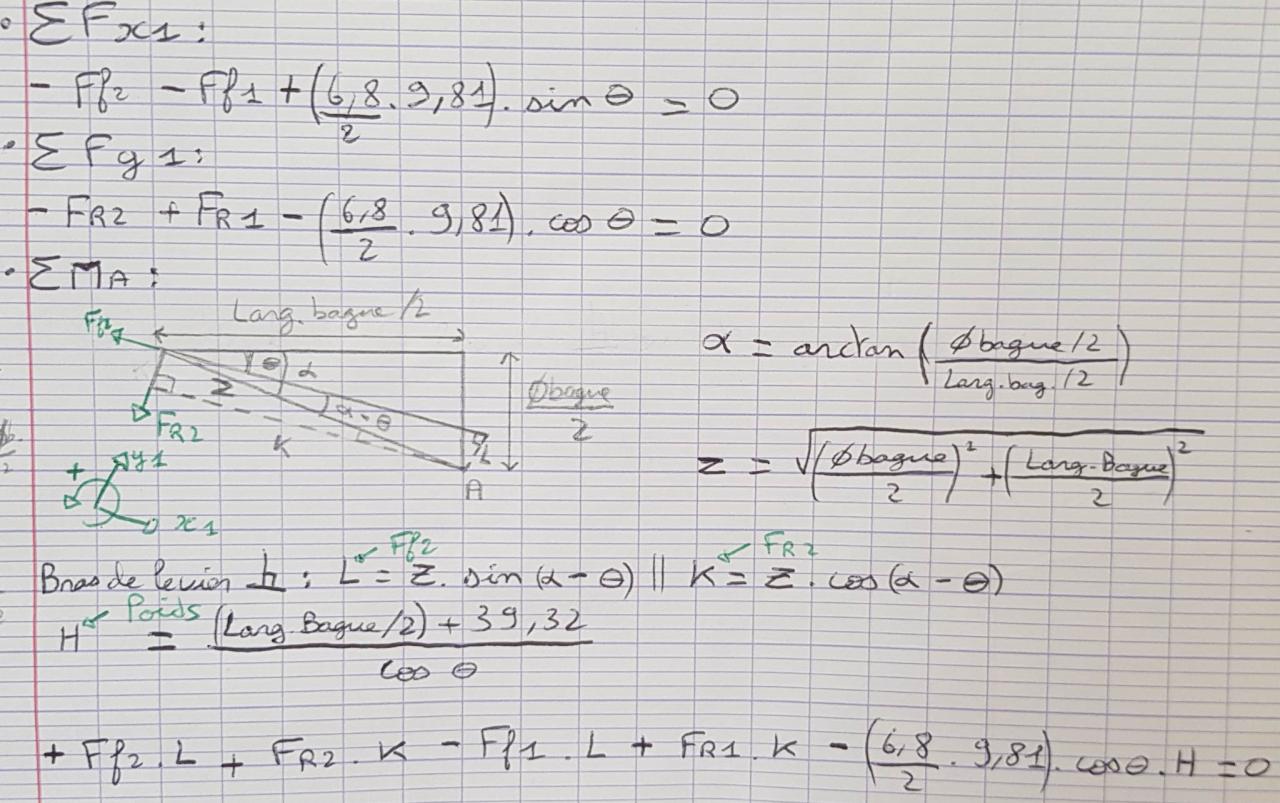 • ΣFx1 :
- Ff2 - Ff1 + (6,8/2 . 9,81) . sin θ = 0
• ΣFy1 :
- FR2 + FR1 - (6,8/2 . 9,81) . cos θ = 0
• ΣMA :
Larg. bague /2
Ff2
θ α
Z
α - θ
φbague/2
FR2
K
L
A
+ y1
x1
α = arctan (φbague/2 / Larg.bag./2)
z = √((φbague/2)² + (Larg.Bague/2)²)
Ff2 FR2
Bras de levier h : L = Z . sin (α - θ) || K = Z . cos (α - θ)
Poids
H = (Larg.Bague/2) + 39,32 / cos θ
+ Ff2 . L + FR2 . K - Ff1 . L + FR1 . K - (6,8/2 . 9,81) . cos θ . H = 0